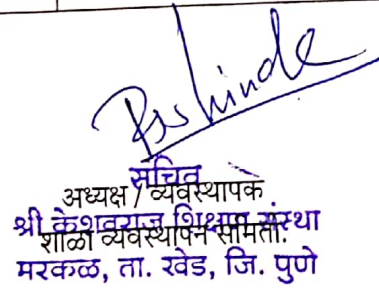 सचिव
अध्यक्ष / व्यवस्थापक
श्री केशवराज शिक्षण संस्था
शाळा व्यवस्थापन समिती.
मरकळ, ता. खेड, जि. पुणे